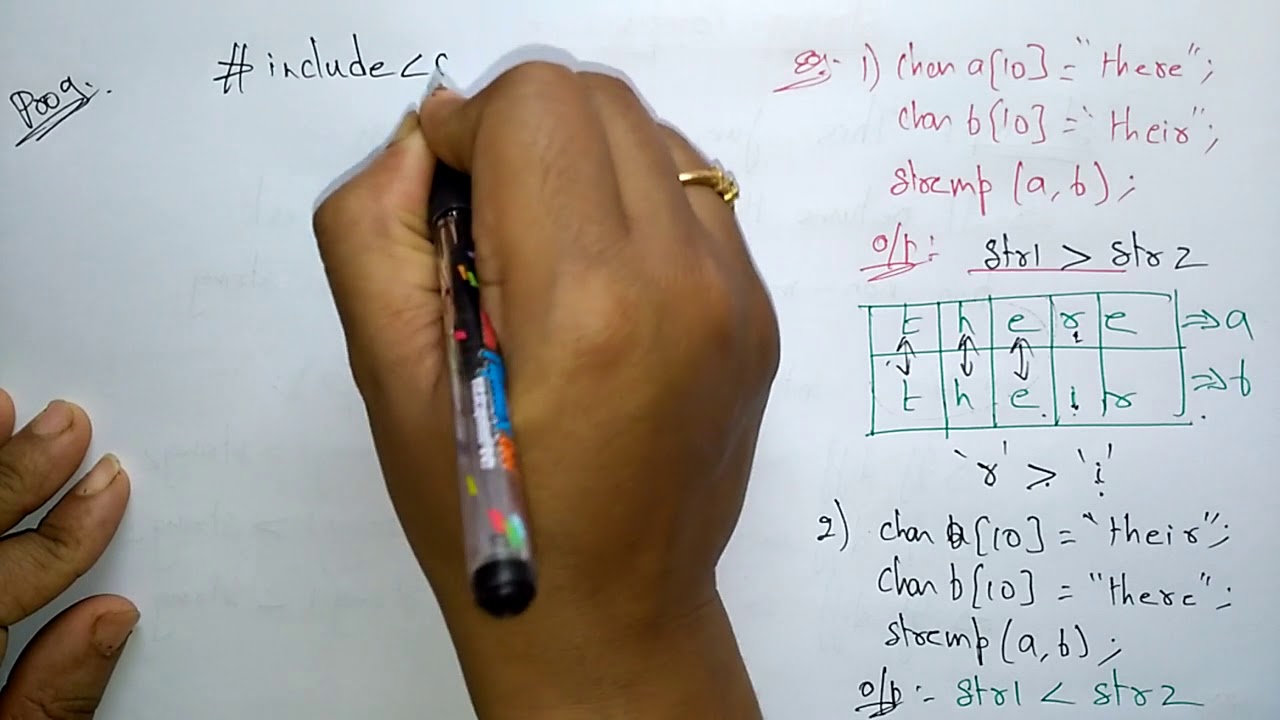 Prog:.
#include<s
Eg:- 1) char a[10] = "there";
char b[10] = "their";
strcmp (a, b);
o/p: str1 > str2
t h e r e ⇒ a
t h e i r ⇒ b
'r' > 'i'
2) char a[10] = "their";
char b[10] = "there";
strcmp (a, b);
o/p :- str1 < str2